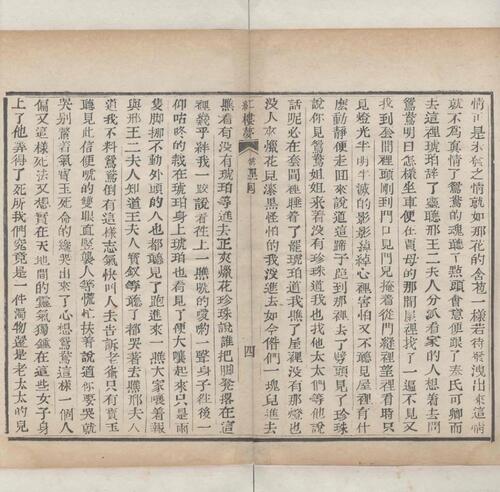 情正是未發之情就如那花的含苞一樣若待發洩出來這情
就不爲真情了鴛鴦的魂聽了點頭會意便跟了秦氏可卿而
去這裡琥珀辭了靈聽邢王二夫人分派看家的人想着去問
鴛鴦明日怎樣坐車便在賈母的那間屋裡找了一遍不見又
找到套間裡頭剛到門口見門兒掩着從門縫裡望裡看時只
見燈光半明半滅的影影綽綽心裡害怕又不聽見屋裡有什
麽動静便走回來說道這蹄子跑到那裡去了劈頭見了珍珠
說你見鴛鴦姐姐來着没有珍珠道我也找他太太們等他說
話呢必在套間裡睡着了罷琥珀道我瞧了屋裡没有那燈也
没人夾爉花兒漆黑怪怕的我没進去如今偺們一塊兒進去
紅樓夢
四
瞧看有没有琥珀等進去正夾爉花珍珠說誰把脚凳撂在這
裡幾乎絆我一跤說着徃上一瞧唬的愛喲一聲身子徃後一
仰咕咚的栽在琥珀身上琥珀也看見了便大嚷起來只是兩
隻脚挪不動外頭的人也都聽見了跑進來一瞧大家嚷着報
與邢王二夫人知道王夫人寶釵等聽了都哭着去瞧邢夫人
道我不料鴛鴦倒有這樣志氣快叫人去告訴老爺只有寶玉
聽見此信便唬的雙眼直竪襲人等慌忙扶着說道你要哭就
哭别彆着氣寶玉死命的纔哭出來了心想鴛鴦這樣一個人
偏又這樣死法又想實在天地間的靈氣獨鍾在這些女子身
上了他算得了死所我們究竟是一件濁物還是老太太的兒